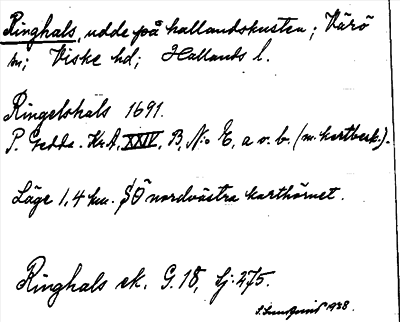 Ringhals, udde på hallandskusten; Värö
sn; Viske hd; Hallands l.
Ringelshals 1691.
P. Gedda. Kr.A. XXIV, B, N:o E, a o. b. (m. kartbesk.).
Läge 1,4 km. SÖ nordvästra karthörnet.
Ringhals ek. G. 18, Lj: 275.
S. Lundqvist 1928.